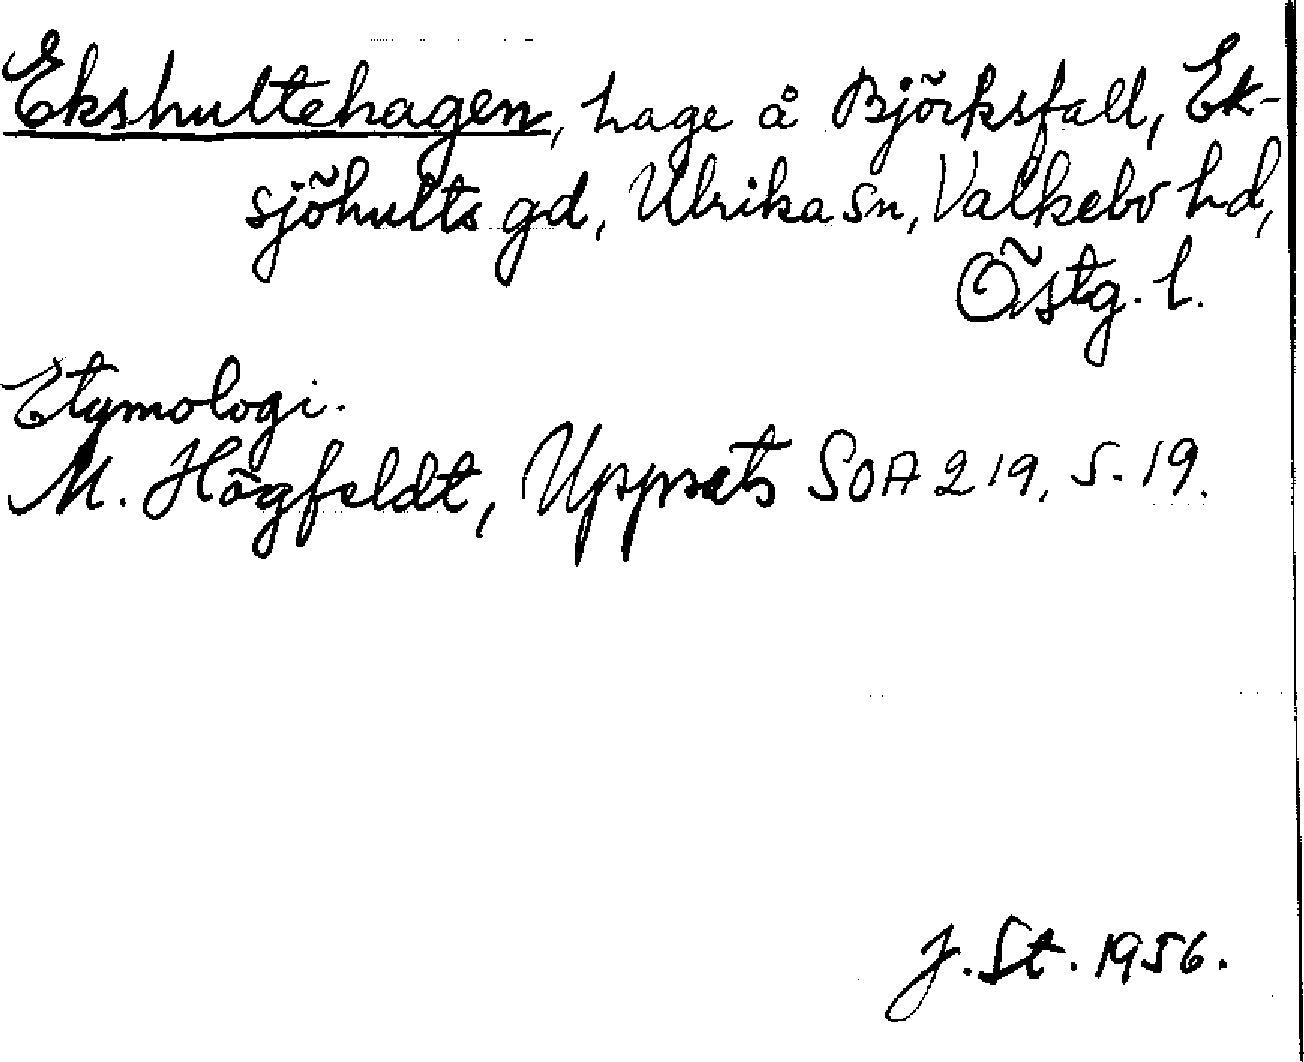 Ekshultehagen, hage å Björksfall, Ek-
sjöhults gd, Ulrika sn, Valkebo hd,
Östg. l.
Etymologi.
M. Högfeldt, Uppsats SOA 219, s. 19.
J. St. 1956.